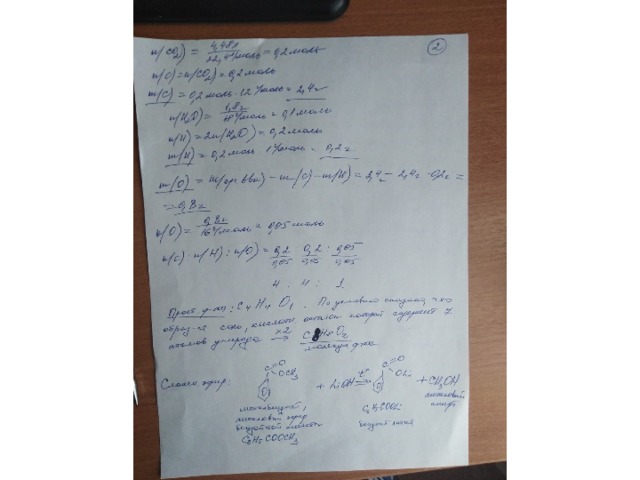 2
n(CO2) = 4,48л / 22,4 л/моль = 0,2 моль
n(C) = n(CO2) = 0,2 моль
m(C) = 0,2 моль · 12 г/моль = 2,4 г
n(H2O) = 1,8 г / 18 г/моль = 0,1 моль
n(H) = 2n(H2O) = 0,2 моль
m(H) = 0,2 моль · 1 г/моль = 0,2 г
m(O) = m(орг в-ва) - m(C) - m(H) = 3,4 - 2,4 г - 0,2 г =
= 0,8 г
n(O) = 0,8 г / 16 г/моль = 0,05 моль
n(C) : n(H) : n(O) = 0,2 / 0,05 : 0,2 / 0,05 : 0,05 / 0,05
4 : 4 : 1
Прост ф-ла: C4H4O1. По условию
соль, кислотн остаток которой содержит 7
атомов углерода ×2 → C8H8O2
молекул ф-ла
Сложн эфир: C O OCH3 + LiOH t° C O OLi + CH3OH
метиловый
спирт
метилбензоат,
метиловый эфир
бензойной кислоты
C6H5COOCH3
C6H5COOLi
бензоат лития